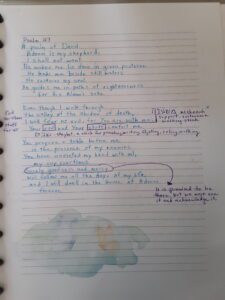 Psalm 23
A psalm of David.
Adonai is my shepherd;
I shall not want.
He makes me lie down in green pastures.
He leads me beside still waters.
He restores my soul.
He guides me in paths of righteousness
for his Name's sake.
Even though I walk through
the valley of the shadow of death,
I will fear no evil, for You are with me:
Your rod and Your staff comfort me.
You prepare a table before me
in the presence of my enemies.
You have anointed my head with oil,
my cup overflows.
Surely goodness and mercy
will follow me all the days of my life,
and I will dwell in the house of Adonai
forever.
support, sustenance
walking stick
is promised to be
there, but we must see
it and acknowledge it.